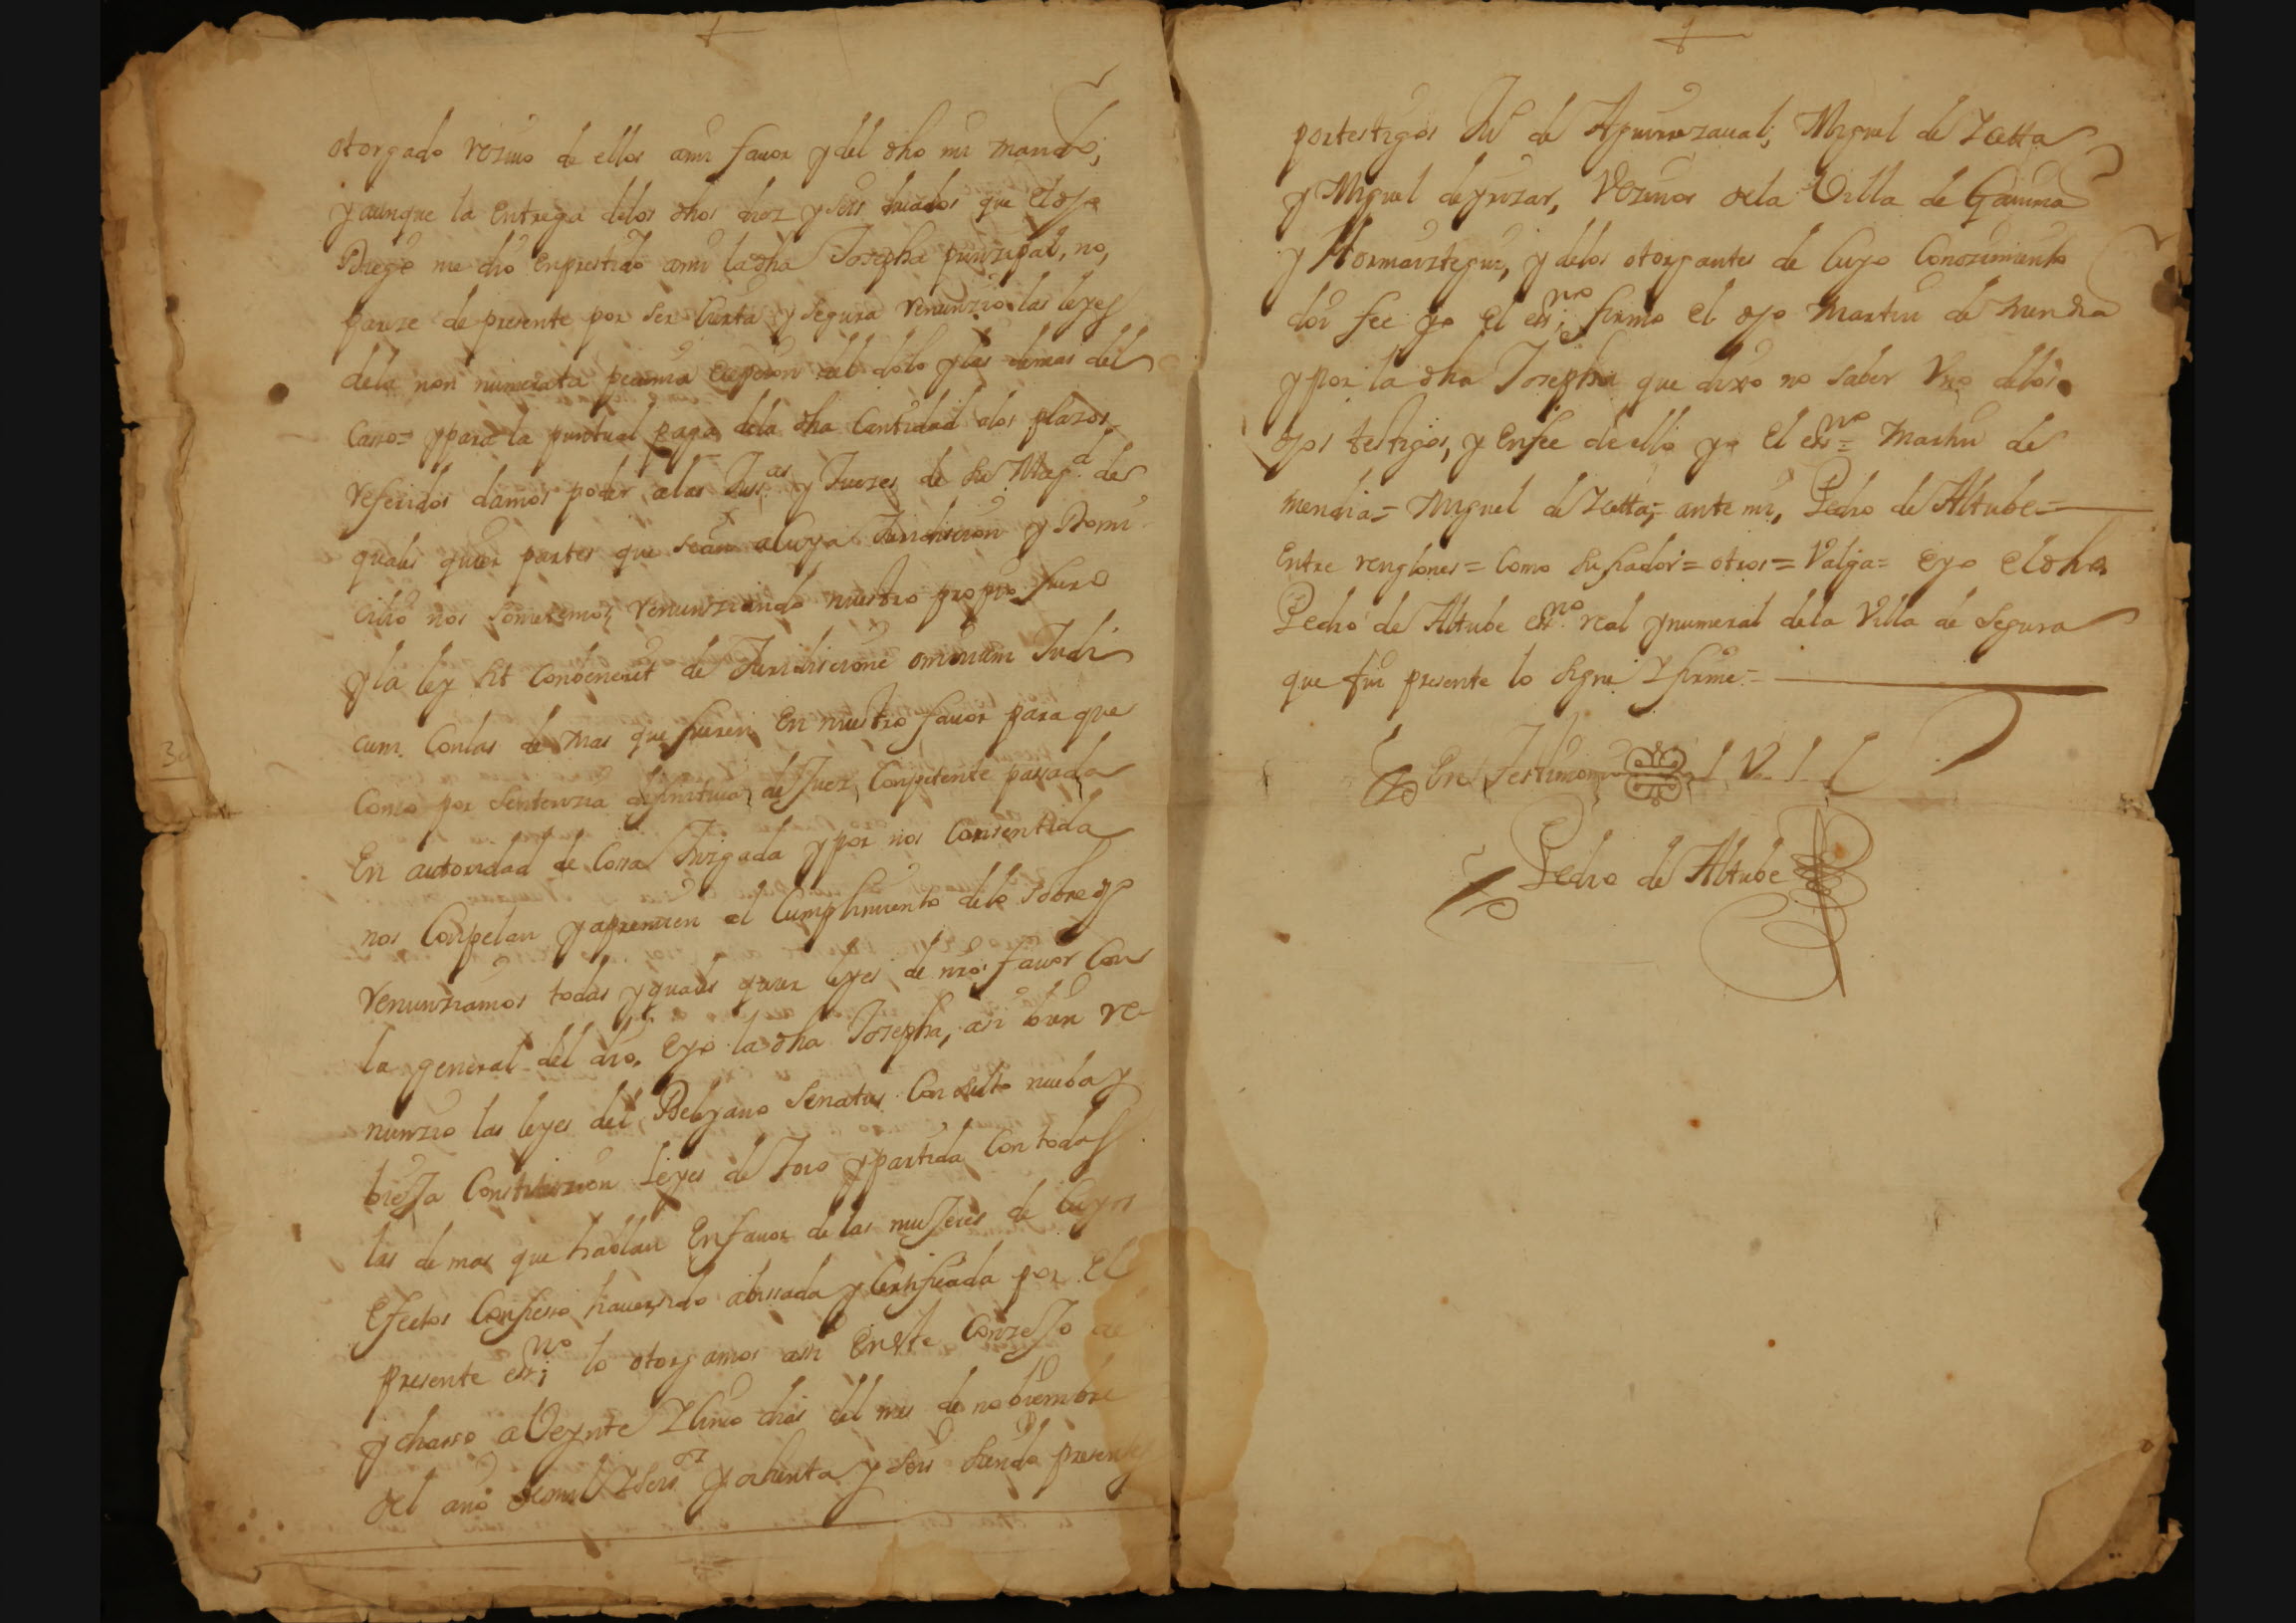 otorgado rezivo de ellos ami fauor y del dho mi marido;
y aunque la entrega delos dhos diez y seis ducados que el dho
me dio enprestido ami la dha Josepha prinzipal, no,
pareze de presente por ser zierta y segura renunzio las leyes
dela non numerata pecunia eçepcion del dolo y las demas del
Casso= y para la puntual paga dela dha Cantidad alos plazos
referidos damos poder alas Juss.as y Juezes de su Mag.d de
quales quier partes que sean a cuya Jurisdicion y Domi-
cilio nos sometemos, renunziando nuestro propio fuero
y la ley sit Conbenerit de Jurisdicione omnium Judi
cum. Conlas de mas que fueren En nuestro fauor para que
Como por Sentenzia difinitiua de Juez Conpetente passada
En autoridad de Cossa Juzgada y por nos Consentida
nos Conpelan y apremien al Cumplimiento delo Sobre dho
renunziamos todas y quales quier leyes de nro fauor Con
la general del dro. E yo la dha Josepha, assi bien re-
nunzio las leyes del Beleyano Senatus Consulto nueba y
bieJa Constituzion Leyes de Toro y partida Con todas
las de mas que hablan En fauor de las mujeres de Cuyos
Efectos Confiesso hauer sido abissada y Certificada por El
presente ess.no; lo otorgamos assi En este ConzeJo de
ychasso a Veynte Zinco dias del mes de nobiembre
del año de mil Y Seis.os y ochenta y seis siendo presentes
por testigos Ju.o de Aguirrezaual; Miguel de Zetta
y Miguel de yrizar, Vezinos dela Villa de Gauiria
y Hormaiztegui, y delos otorgantes de Cuyo Conozimiento
doi fee yo el ess.no; firmo el dho Martin de mendia
y por la dha Josepha que dixo no saber Vno delos
dhos testigos, y Enfee de ello yo El ess.no= Martin de
mendia= Miguel de Zetta;= ante mi, Pedro de Altube=
Entre renglones= Como su fiador= otros= Valga= E yo El dho
Pedro de Altube ess.no real y numeral dela Villa de Segura
que fui presente lo signe Y firme=
En Testimonio V
Pedro de Altube